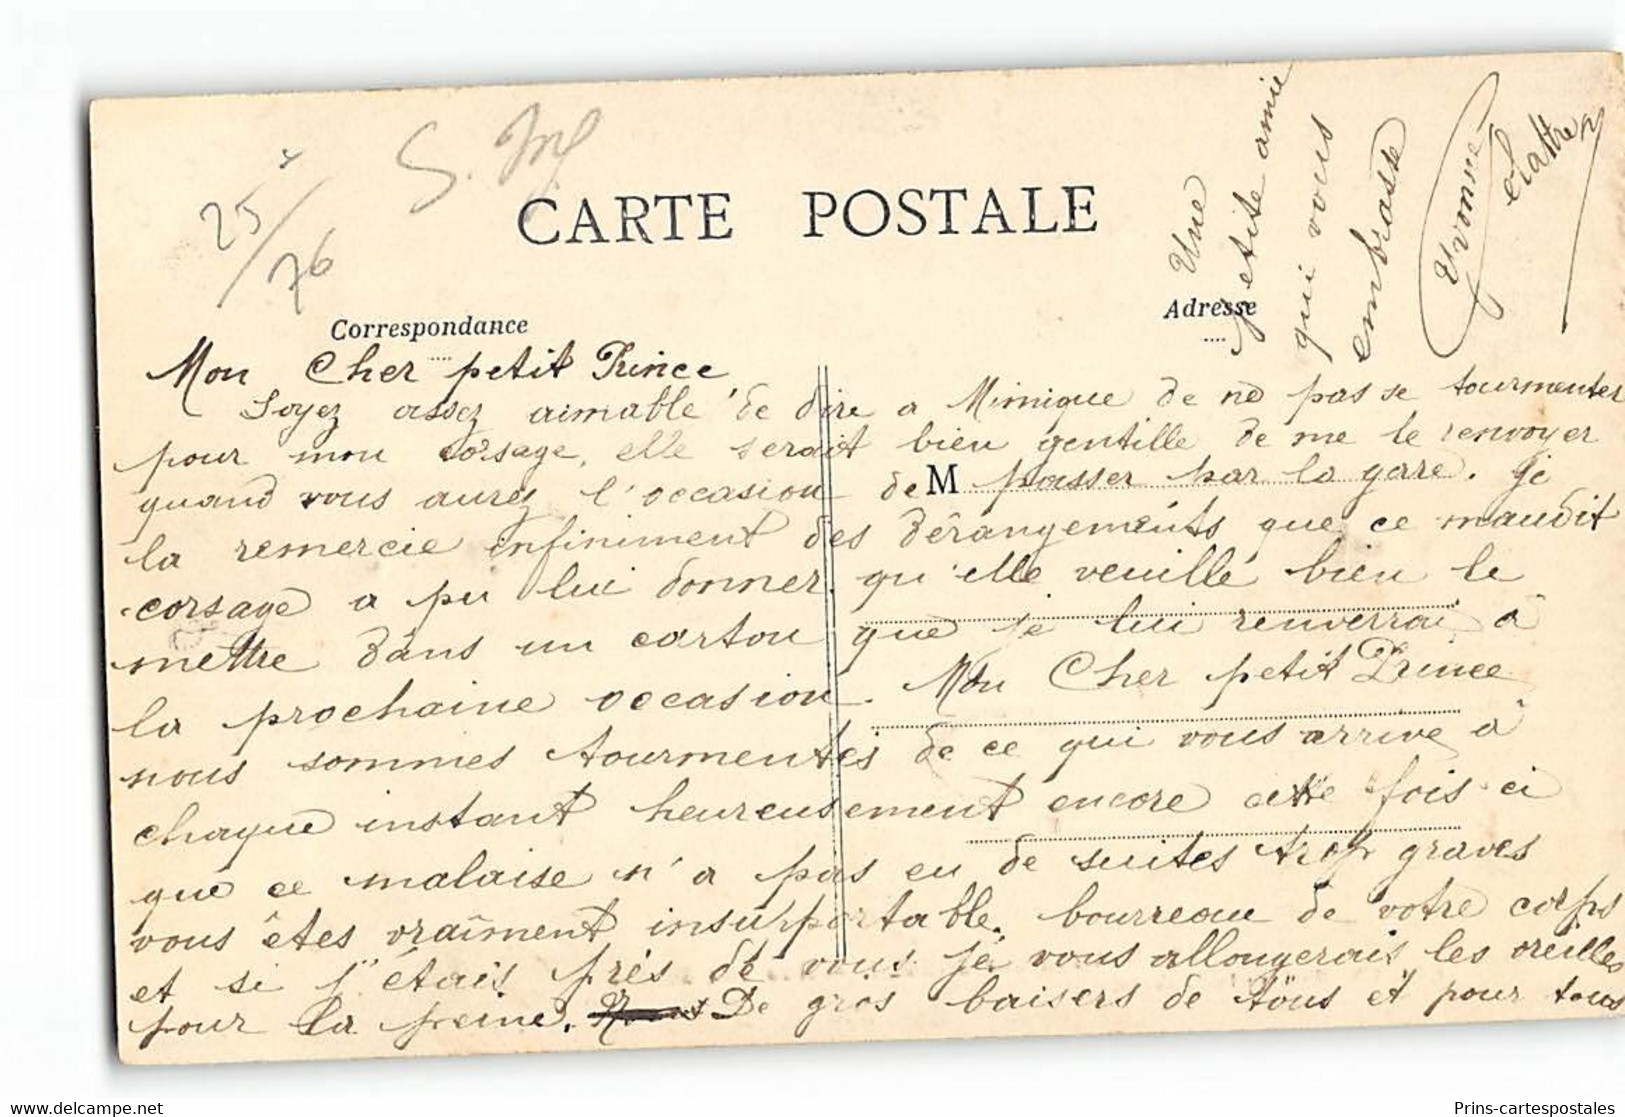 25/76
CARTE POSTALE
Correspondance
Adresse
Mon Cher petit Prince
Soyez assez aimable de dire a Mimique de ne pas se tourmenter
pour mon corsage, elle serait bien gentille de me le renvoyer
quand vous aurez l'occasion de M passer par la gare. Je
la remercie infiniment des dérangements que ce maudit
corsage a pu lui donner. qu'elle veuille bien le
mettre dans un carton que je lui renverrai à
la prochaine occasion. Mon Cher petit Prince
nous sommes tourmentés de ce qui vous arrive à
chaque instant heureusement encore cette fois ci
que ce malaise n'a pas eu de suites trop graves
vous êtes vraîment insupportable, bourreau de votre corps
et si j'étais près de vous je vous allongerais les oreilles
pour la peine. De gros baisers de tous et pour tous
Une
petite amie
qui vous
embrasse
Yvonne
Prins-cartespostales
www.delcampe.net